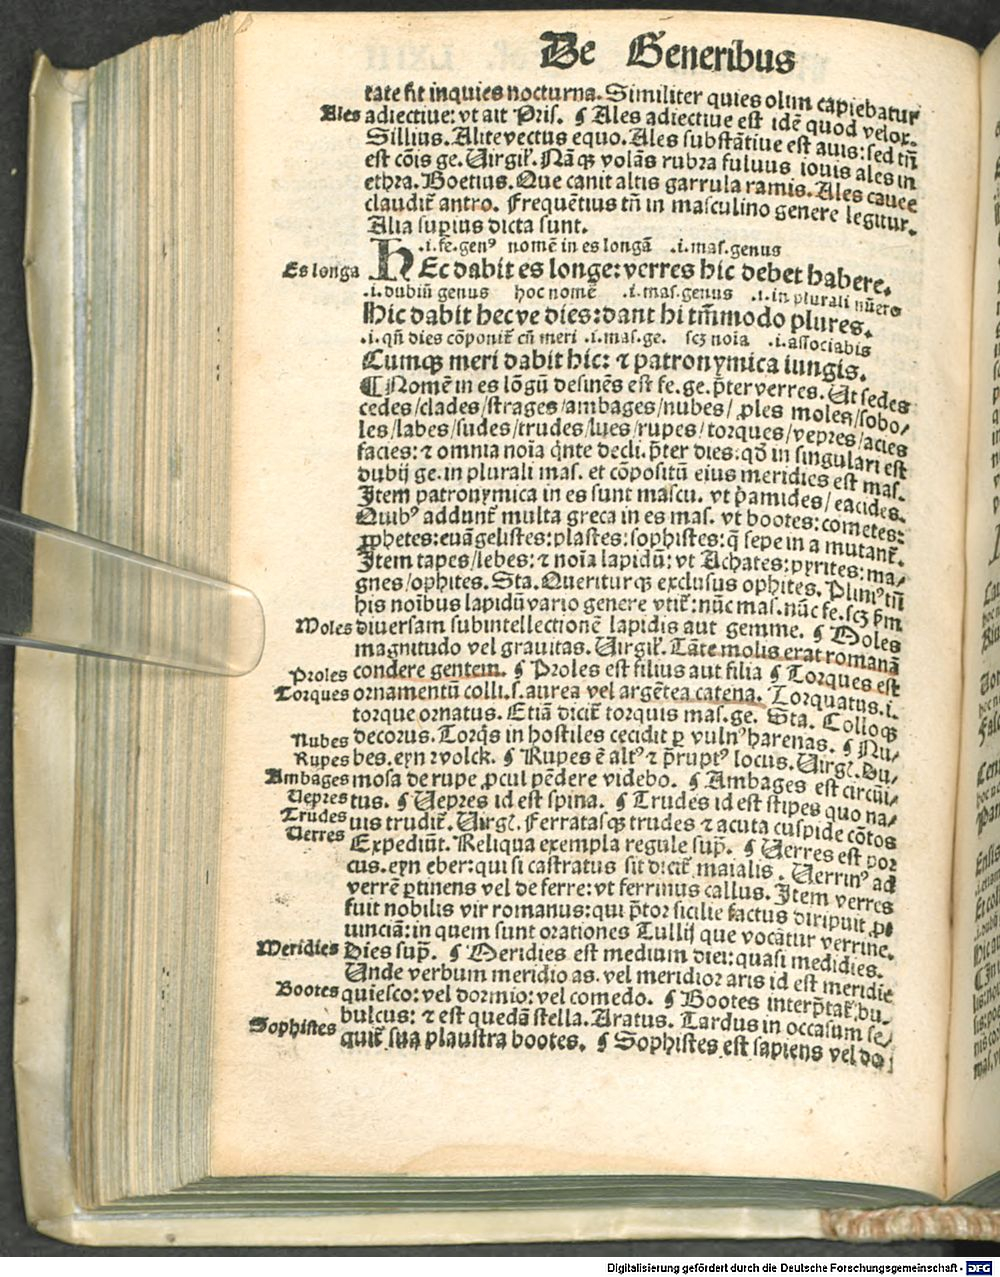 De Generibus
tate fit inquies nocturna. Similiter quies olim capiebatur
Ales adiectiue: vt ait Pris. ¶ Ales adiectiue est idē quod velox.
Sillius. Alite vectus equo. Ales substātiue est auis: sed tñ
est cōis ge. Uirgiľ. Nāqꝫ volās rubra fuluus iouis ales in
ethra. Boetius. Que canit altis garrula ramis. Ales cauee
claudit̄ antro. Frequētius tñ in masculino genere legitur.
Alia supius dicta sunt.
.i. fe. genꝰ nomē in es longā .i. mas. genus
Es longa HEc dabit es longe: verres hic debet habere.
.i. dubiū genus hoc nomē .i. mas. genus .i. in plurali nūero
Hic dabit hecve dies: dant hi tm̄modo plures.
.i. qñ dies cōponit̄ cū meri .i. mas. ge. scꝫ noīa .i. associabis
Cumqꝫ meri dabit hic: ⁊ patronymica iungis.
¶ Nomē in es lōgū desinēs est fe. ge. p̄ter verres. Ut sedes
cedes/clades/strages/ambages/nubes/ ꝓles moles/sobo/
les/labes/sudes/trudes/lues/rupes/torques/vepres/acies
facies: ⁊ omnia noīa qͥnte decli. p̄ter dies: qō in singulari est
dubij ge. in plurali mas. et cōpositū eius meridies est mas.
Item patronymica in es sunt mascu. vt pͥamides/eacides.
Quibꝰ addunt̄ multa greca in es mas. vt bootes: cometes:
ꝓphetes: euāgelistes: plastes: sophistes: q̄ sepe in a mutant̄.
Item tapes/lebes: ⁊ noīa lapidū: vt Achates: pyrites: ma/
gnes/ophites. Sta. Queriturqꝫ exclusus ophites. Pliniꝰ tñ
his noībus lapidū vario genere vtit̄: nūc mas. nūc fe. scꝫ ẜm
Moles diuersam subintellectionē lapidis aut gemme. ¶ Moles
magnitudo vel grauitas. Uirgiľ. Tāte molis erat romanā
Proles condere gentem. ¶ Proles est filius aut filia ¶ Torques est
Torques ornamentū colli. s. aurea vel argētea catena. Torquatus .i.
torque ornatus. Etiā dicit̄ torquis mas. ge. Sta. Colloqꝫ
Nubes decorus. Torqͥs in hostiles cecidit ꝑ vulnꝰ harenas. ¶ Nu/
Rupes bes. eyn wolck. ¶ Rupes ē altꝰ ⁊ p̄ruptꝰ locus. Uirgľ. Du/
Ambages mosa de rupe ꝓcul pēdere videbo. ¶ Ambages est circūi/
Uepres tus. ¶ Uepres id est spina. ¶ Trudes id est stipes quo na/
Trudes uis trudit̄. Uirgľ. Ferratasqꝫ trudes ⁊ acuta cuspide cōtos
Uerres Expediūt. Reliqua exempla regule sup̄. ¶ Uerres est por
cus. eyn eber: qui si castratus sit dicit̄ maialis. Uerrinꝰ ad
verrē ꝑtinens vel de ferre: vt ferrinus callus. Item verres
fuit nobilis vir romanus: qui p̄tor sicilie factus diripuit ꝓ
uinciā: in quem sunt orationes Tullij que vocātur verrine.
Meridies Dies sup̄. ¶ Meridies est medium diei: quasi medidies.
Unde verbum meridio as. vel meridior aris id est meridie
Bootes quiesco: vel dormio: vel comedo. ¶ Bootes interp̄tat̄ bu
bulcus: ⁊ est quedā stella. Aratus. Tardus in occasum se/
Sophistes quit̄ sua plaustra bootes. ¶ Sophistes est sapiens vel do
Digitalisierung gefördert durch die Deutsche Forschungsgemeinschaft - DFG